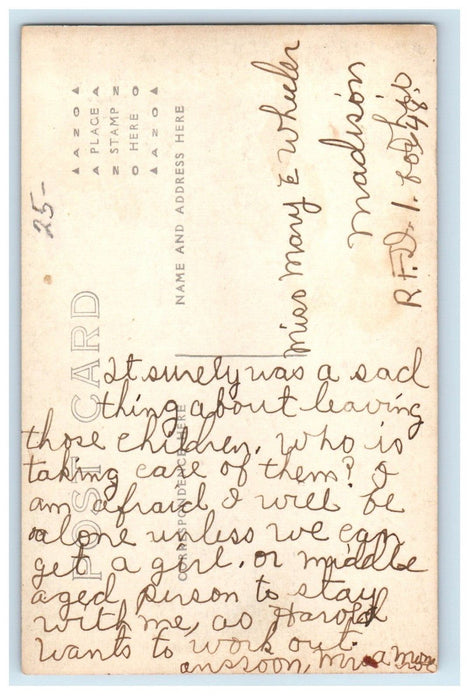 POST CARD
CORRESPONDENCE HERE
NAME AND ADDRESS HERE
PLACE
STAMP
HERE
AZO
AZO
25-
Miss Mary E Wheeler
Madison
Ohio
R.F.D. 1. Box 48.
It surely was a sad
thing about leaving
those children, who is
taking care of them? I
am afraid I will be
alone unless we can
get a girl, or middle
aged person to stay
with me, as Harold
wants to work out.
ans soon,